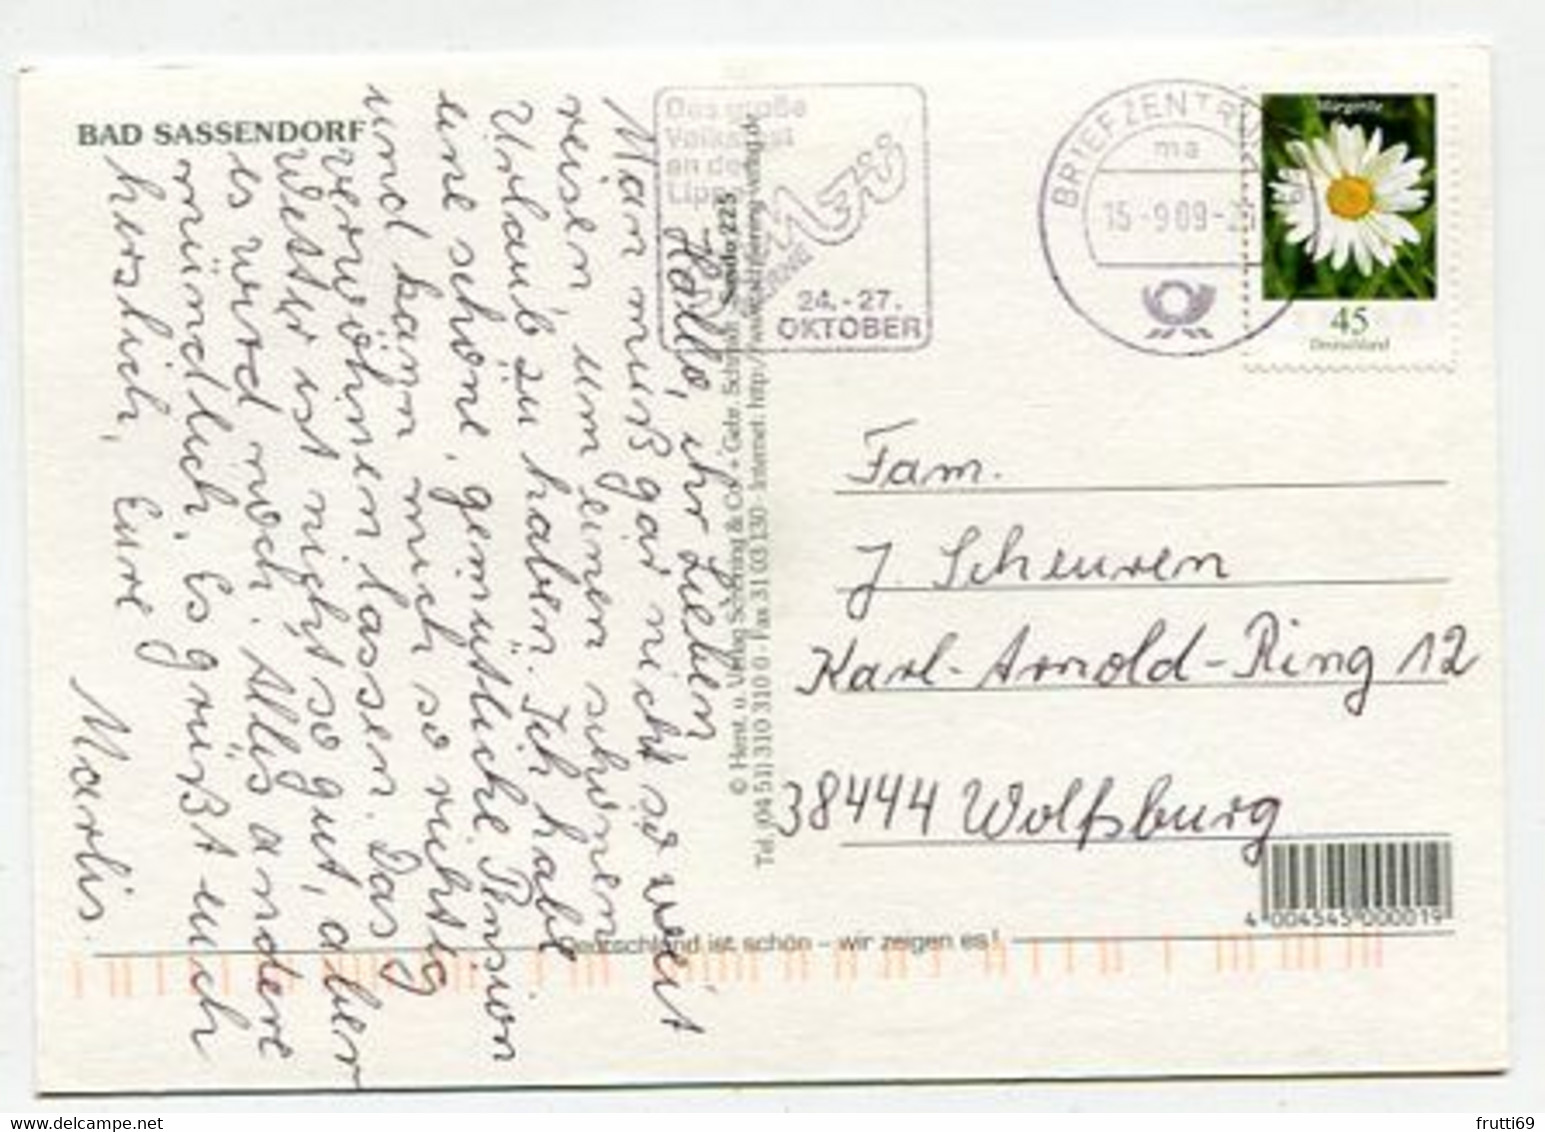 BAD SASSENDORF
Hallo, ihr Lieben
Man muß gar nicht so weit
reisen, um einen schönen
Urlaub zu haben. Ich habe
eine schöne, gemütliche Pension
und kann mich so richtig
verwöhnen lassen. Das
Wetter ist nicht so gut, aber
es wird noch. Alles andere
mündlich. Es grüßt euch
herzlich, Eure
Marlis.
Das große
Volksfest
an der
Lippe
24.-27.
OKTOBER
BRIEFZENTRUM
ma
15.-9.09-
Margerite
45
Deutschland
© Herst. u. Verlag Schöning & Co + Gebr. Schmidt Sasdo 225
Tel. (04 51) 310 310 0 - Fax 31 03 130 - Internet: http://www.schoening-verlag.de
Fam.
J. Scheuren
Karl-Arnold-Ring 12
38444 Wolfsburg
4 004545 000019
Deutschland ist schön – wir zeigen es!
frutti69